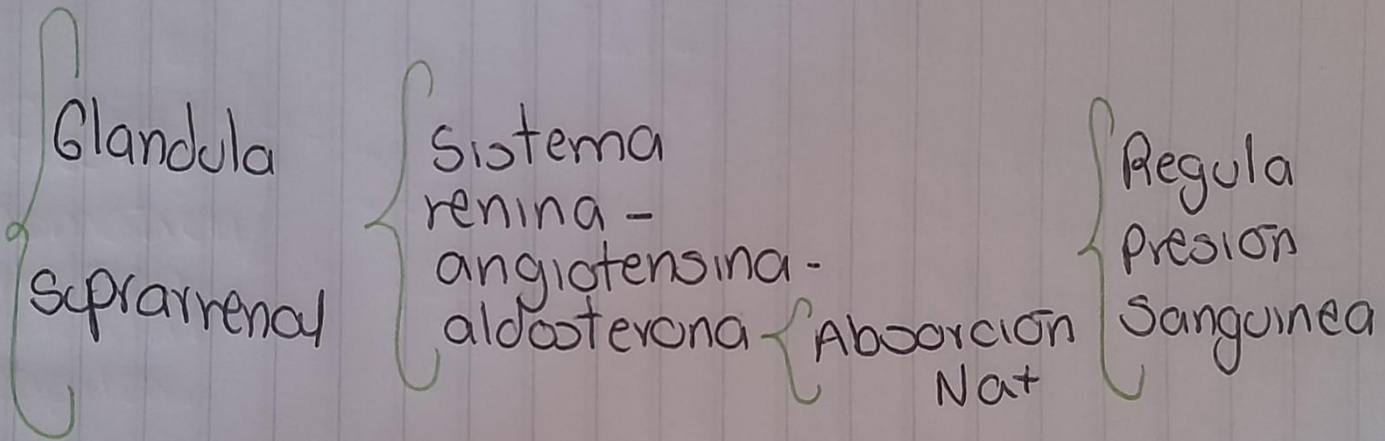 Glandula
suprarrenal
Sistema
renina -
angiotensina -
aldosterona
Absorción
Na+
Regula
presión
sanguinea